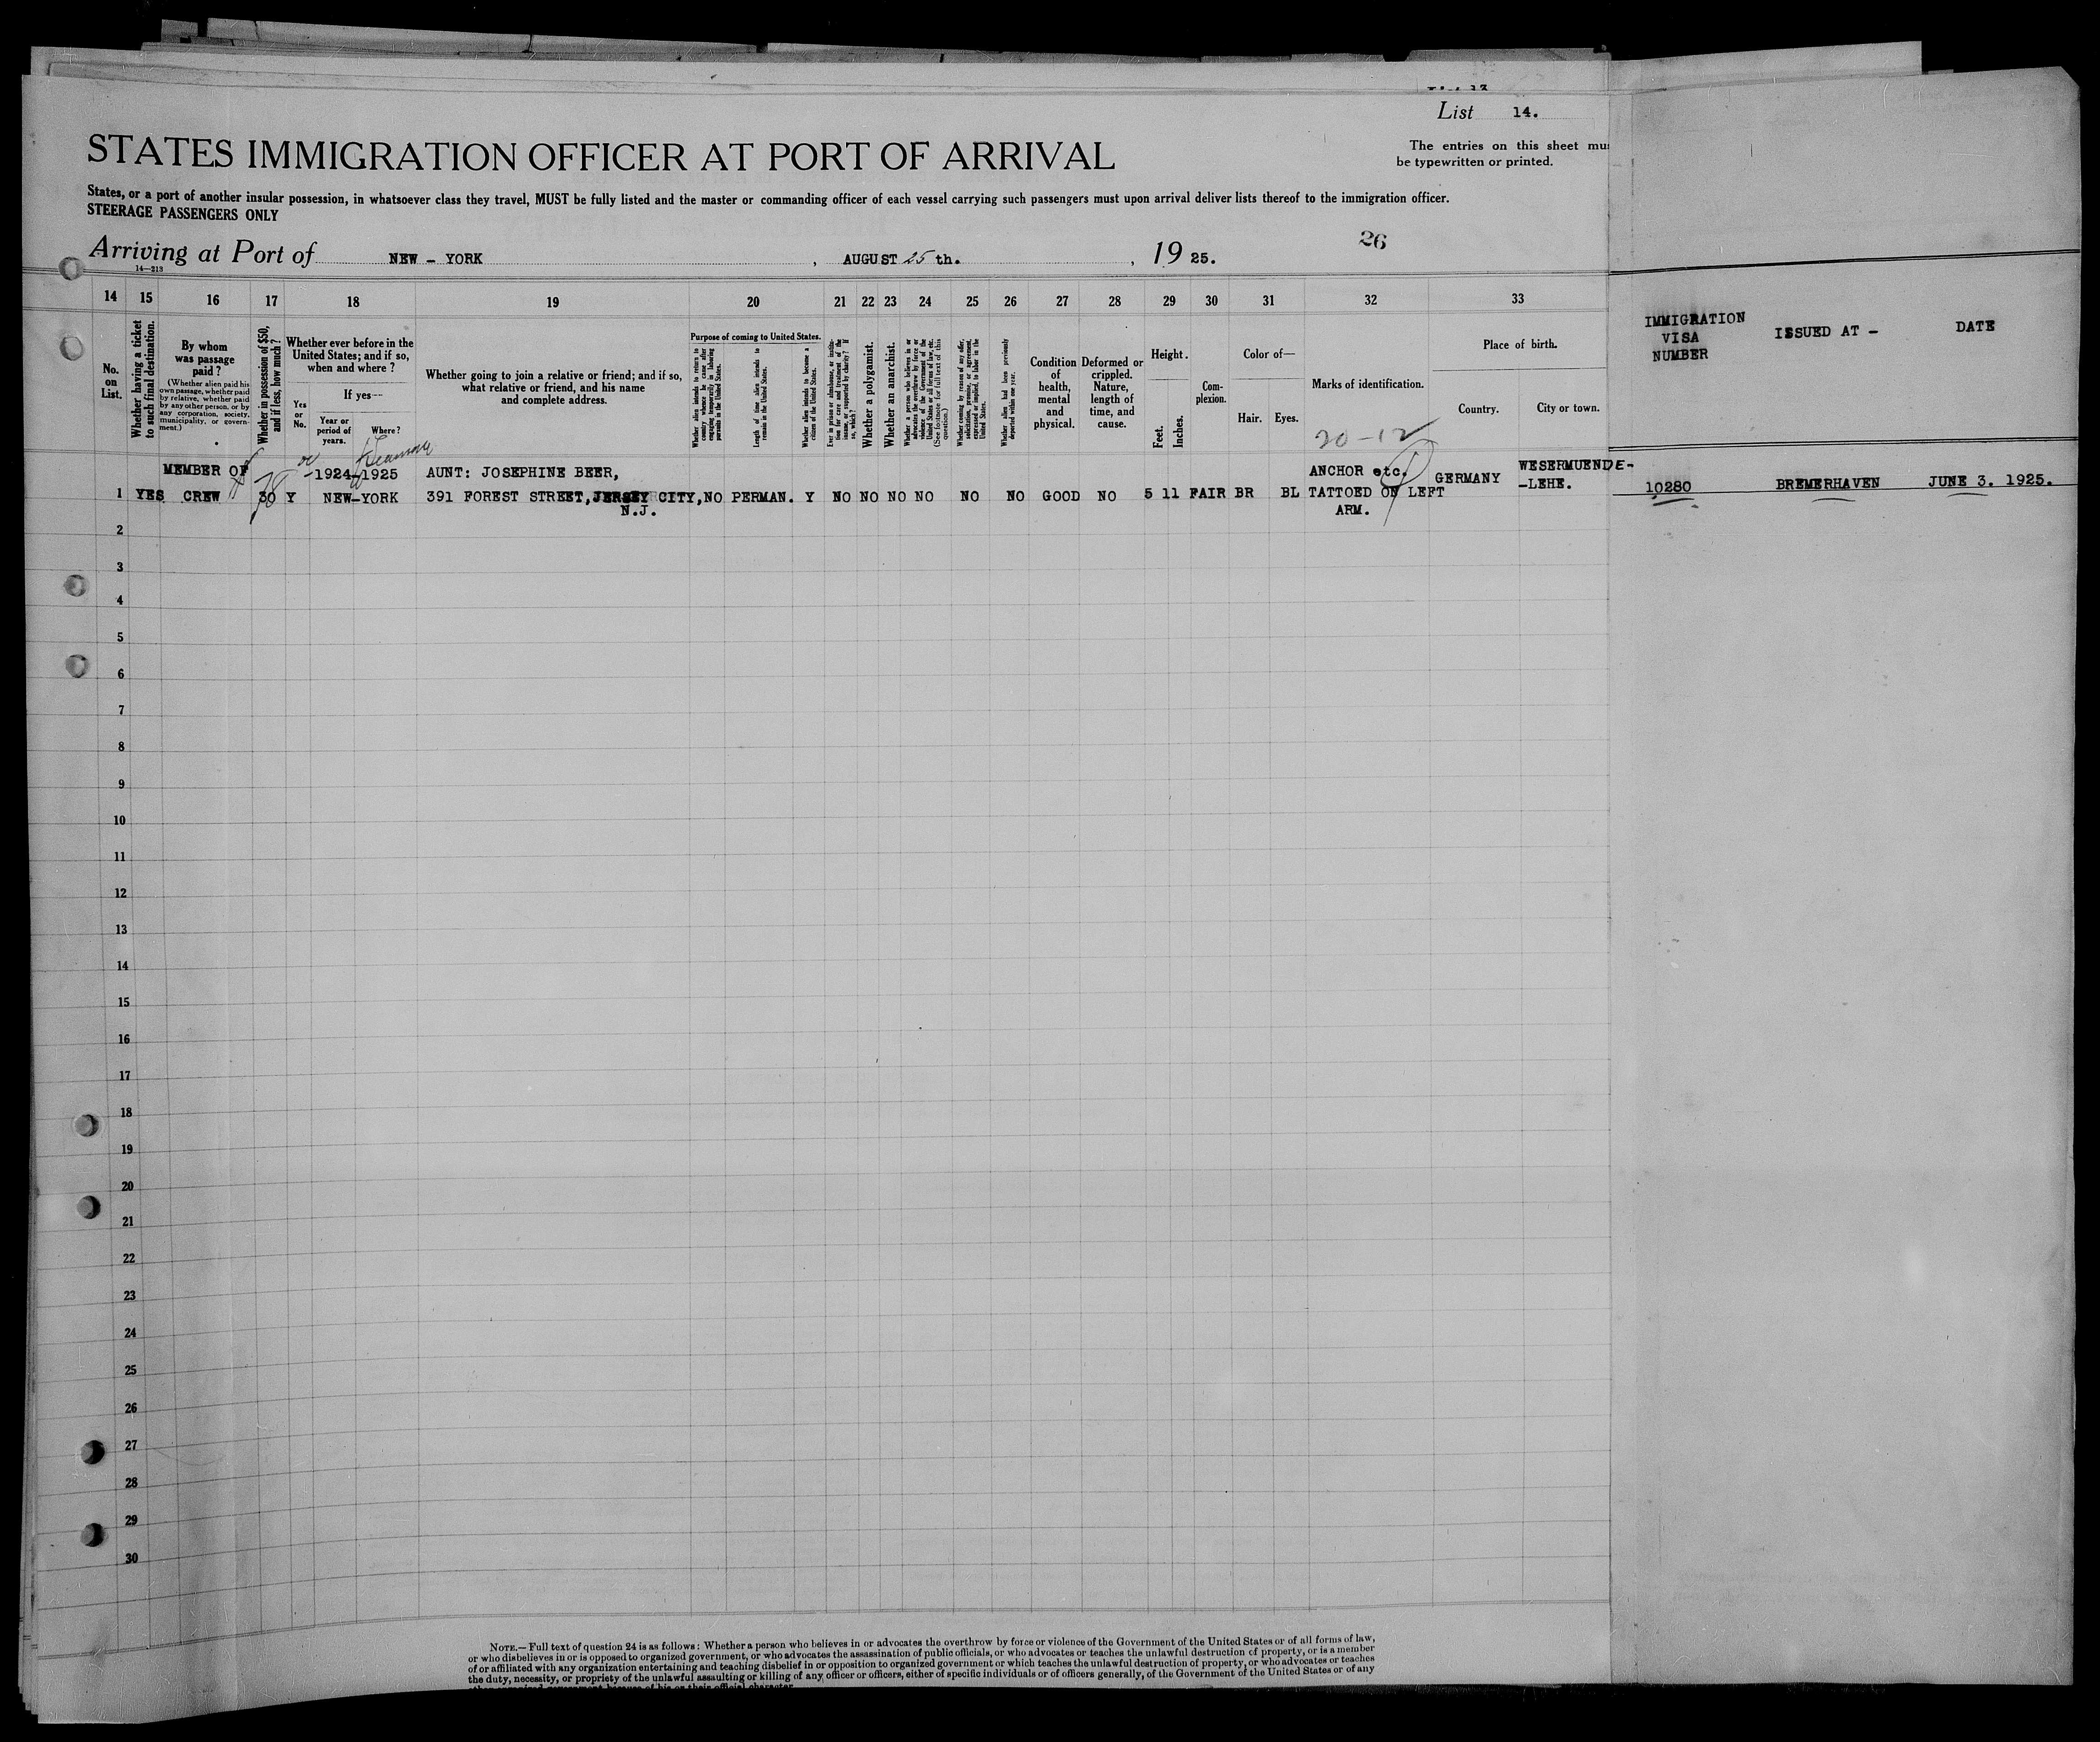 List 14.
STATES IMMIGRATION OFFICER AT PORT OF ARRIVAL
The entries on this sheet mu
be typewritten or printed.
States, or a port of another insular possession, in whatsoever class they travel, MUST be fully listed and the master or commanding officer of each vessel carrying such passengers must upon arrival deliver lists thereof to the immigration officer.
STEERAGE PASSENGERS ONLY
26
Arriving at Port of NEW - YORK , AUGUST 25 th. , 19 25.
14—213
14 15 16 17 18 19 20 21 22 23 24 25 26 27 28 29 30 31 32 33
No. on List.
Whether having a ticket to such final destination.
By whom was passage paid?
(Whether alien paid his own passage, whether paid by relative, whether paid by any other person, or by any corporation, society, municipality, or government.)
Whether in possession of $50, and if less, how much?
Whether ever before in the United States; and if so, when and where?
Yes or No.
If yes—
Year or period of years.
Where?
Whether going to join a relative or friend; and if so, what relative or friend, and his name and complete address.
Purpose of coming to United States.
Whether alien intends to return to country whence he came after engaging temporarily in laboring pursuits in the United States.
Length of time alien intends to remain in the United States.
Whether alien intends to become a citizen of the United States.
Ever in prison or almshouse, or institution for care and treatment of the insane, or supported by charity? If so, which?
Whether a polygamist.
Whether an anarchist.
Whether a person who believes in or advocates the overthrow by force or violence of the Government of the United States or all forms of law, etc. (See footnote for full text of this question.)
Whether coming by reason of any offer, solicitation, promise, or agreement, expressed or implied, to labor in the United States.
Whether alien had been previously deported within one year.
Condition of health, mental and physical.
Deformed or crippled. Nature, length of time, and cause.
Height.
Feet.
Inches.
Complexion.
Color of—
Hair.
Eyes.
Marks of identification.
Place of birth.
Country.
City or town.
IMMIGRATION VISA NUMBER
ISSUED AT -
DATE
20-12
MEMBER OF -1924-1925 AUNT: JOSEPHINE BEER, ANCHOR etc. GERMANY WESERMUENDE-
1 YES CREW 30 Y NEW-YORK 391 FOREST STREET, JERSEY CITY, NO PERMAN. Y NO NO NO NO NO NO GOOD NO 5 11 FAIR BR BL TATTOED ON LEFT -LEHE. 10280 BREMERHAVEN JUNE 3. 1925.
N.J. ARM.
2
3
4
5
6
7
8
9
10
11
12
13
14
15
16
17
18
19
20
21
22
23
24
25
26
27
28
29
30
NOTE.—Full text of question 24 is as follows: Whether a person who believes in or advocates the overthrow by force or violence of the Government of the United States or of all forms of law,
or who disbelieves in or is opposed to organized government, or who advocates the assassination of public officials, or who advocates or teaches the unlawful destruction of property, or is a member
of or affiliated with any organization entertaining and teaching disbelief in or opposition to organized government or which teaches the unlawful destruction of property, or who advocates or teaches
the duty, necessity, or propriety of the unlawful assaulting or killing of any officer or officers, either of specific individuals or of officers generally, of the Government of the United States or of any